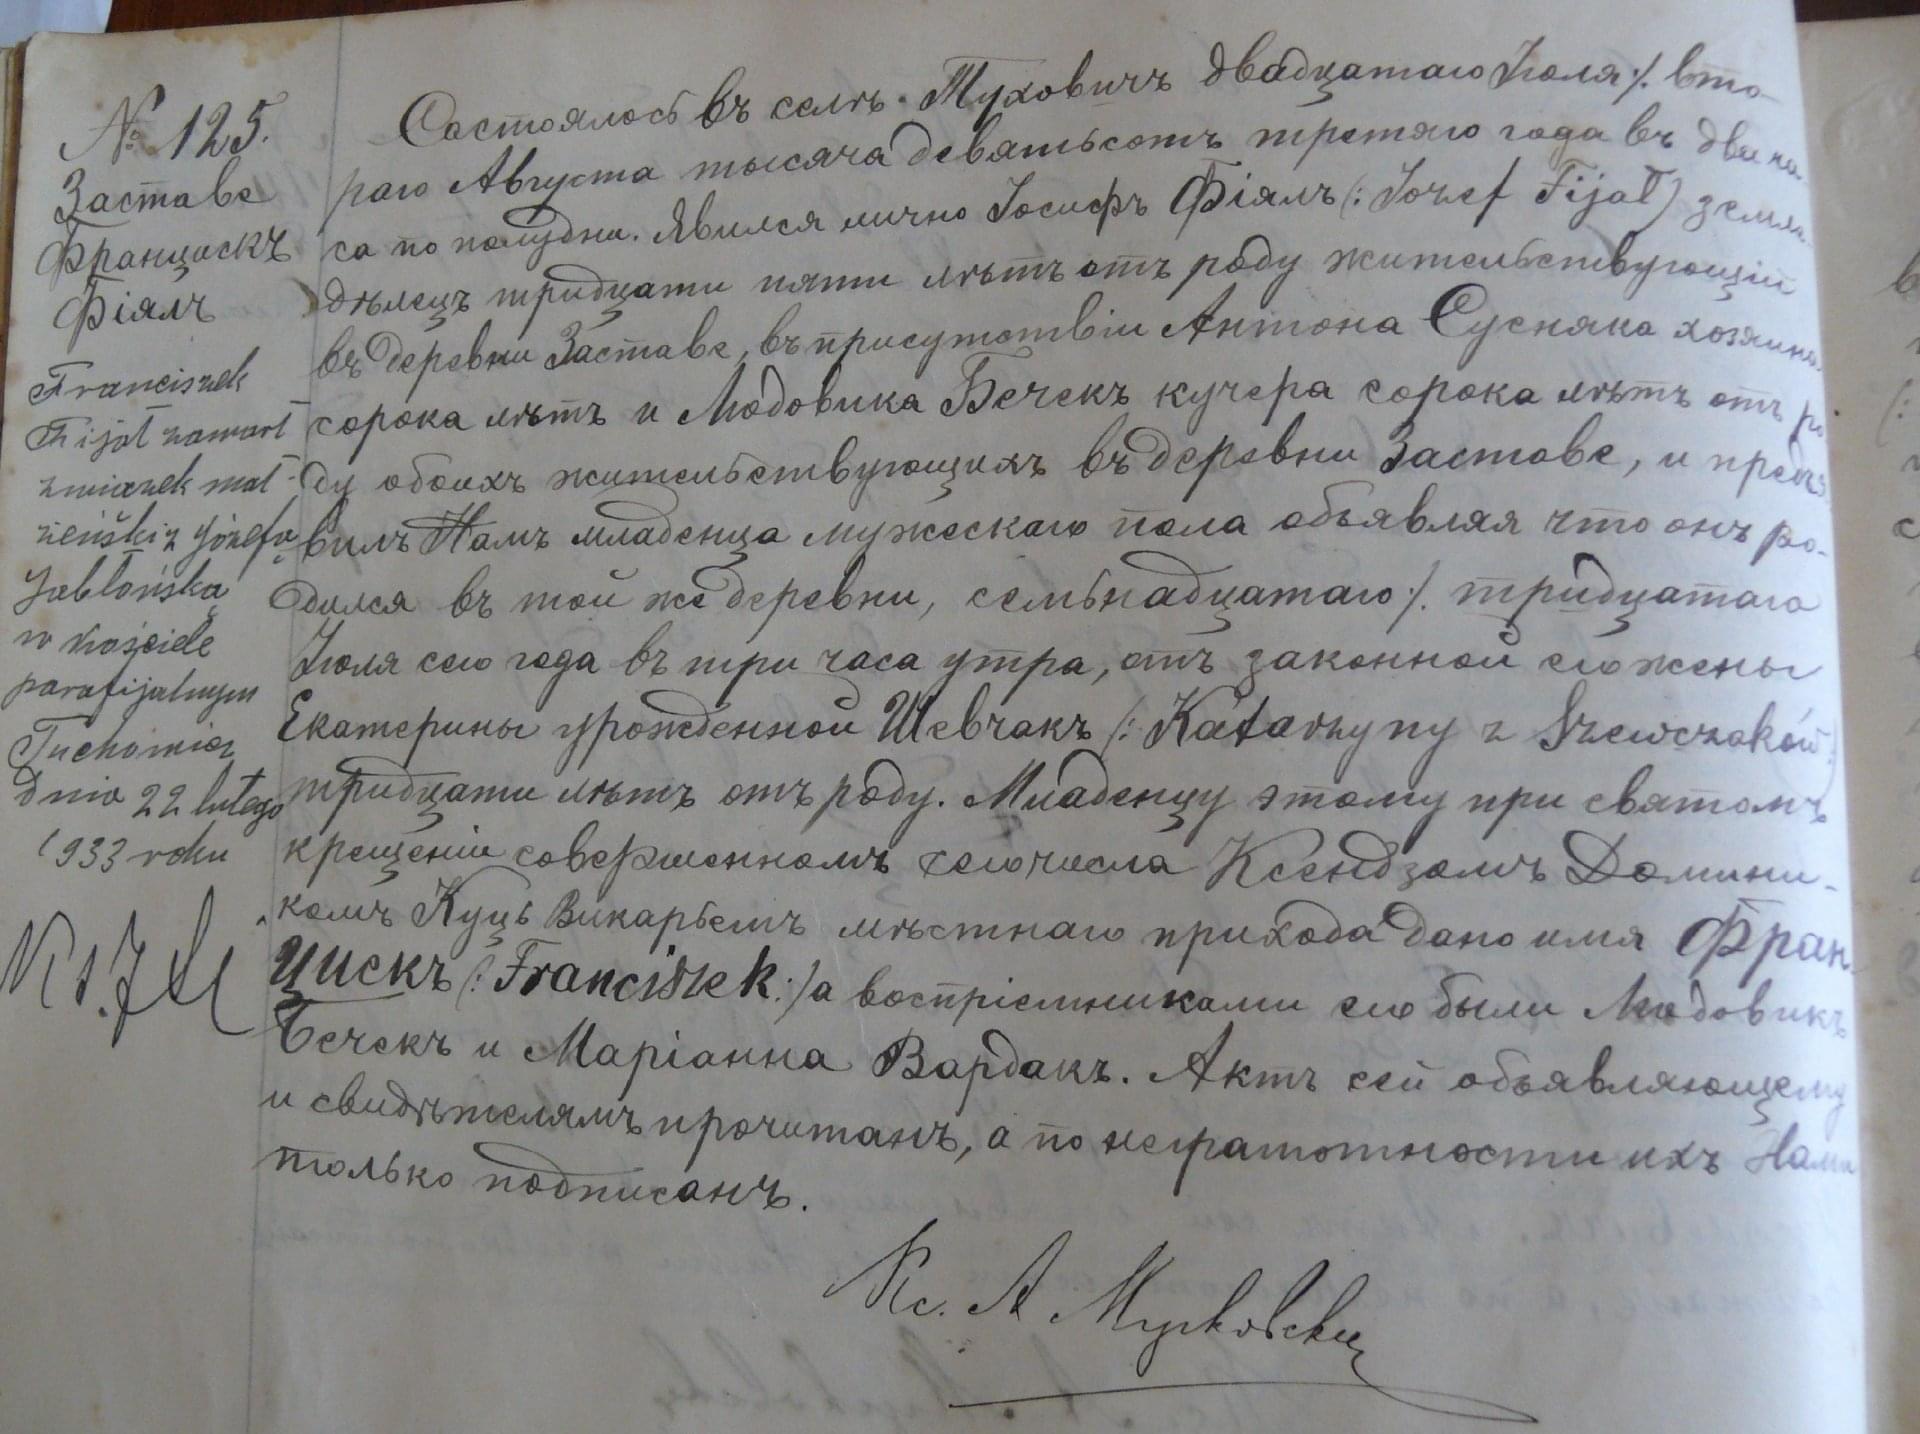 № 125.
Заставе
Францискъ
Фіялъ
Franciszek
Fijoł zawarł
związek mał-
żeński z Józefą
Jabłońską
w kościele
parafijalnym
Tuchowicz
dnia 22 lutego
1933 roku
Состоялось въ селѣ Туховичъ двадцатаго Іюля ∕. вто-
раго Августа тысяча девятьсотъ третяго года въ два ча-
са по полудни. Явился лично Іосифъ Фіялъ (: Iozef Fijał) земле-
дѣлецъ тридцати пяти лѣтъ отъ роду жительствующій
въ деревни Заставе, въ присутствіи Антона Сусняка хозяина
сорока лѣтъ и Людовика Бечекъ кучера сорока лѣтъ отъ ро
ду обоихъ жительствующихъ въ деревни Заставе, и предъя
вилъ Намъ младенца мужескаго пола объявляя что онъ ро-
дился въ той же деревни, семьнадцатаго ∕. тридцатаго
Іюля сего года въ три часа утра, отъ законной его жены
Екатерины урожденной Шевчакъ (: Katarzyny z Szewczaków:)
тридцати лѣтъ отъ роду. Младенцу этому при святомъ
крещеніи совершенномъ сего числа Ксендзомъ Домини-
комъ Куць Викарьемъ мѣстнаго прихода дано имя Фран-
цискъ (: Franciszek :) а воспріемниками его были Людовикъ
Бечекъ и Маріанна Вардакъ. Актъ сей объявляющему
и свидѣтелямъ прочитанъ, а по неграмотности ихъ Нами
только подписанъ.
Кс. А